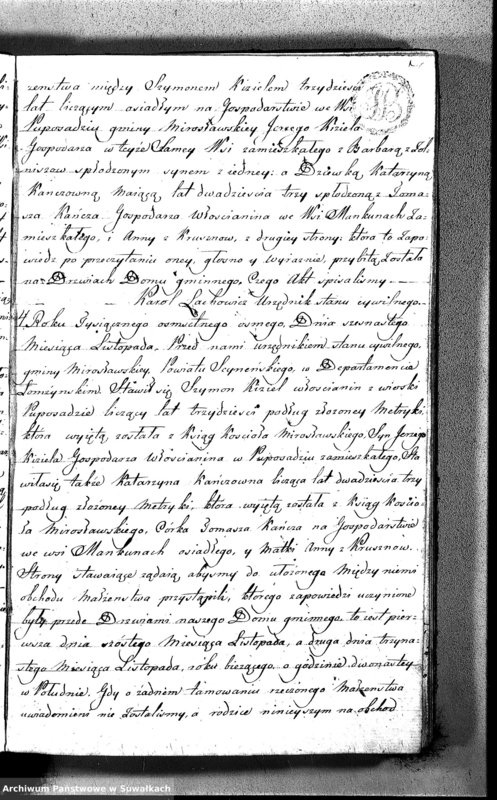 zenstwa między Szymonem Kizielem trzydziesci
lat liczącym osiadłym na Gospodarstwie we Wsi
Puposadziu gminy Mirosławskiey Jerzego Kiziela
Gospodarza w teyże Samey Wsi zamieszkałego z Barbarą z
niszow spłodzonym synem z iedney: a Dziewką Katarzyną
Kanczowną maiącą lat dwadziescia trzy spłodzoną z Toma-
sza Kańcza Gospodarza Włoscianina we Wsi Mankunach Za-
mieszkałego, i Anny z Krusznow, z drugiey strony: ktora to Zapo-
wiedz po przeczytaniu oney, głosno y wyraznie, przybitą Została
na Drzwiach Domu gminnego, Czego Akt spisalismy.
Karol Lachowicz Urzędnik stanu cywilnego.
4. Roku Tysiącznego osmsetnego osmego, Dnia szesnastego
Miesiąca Listopada. Przed nami urzędnikiem stanu cywilnego,
gminy Mirosławskiey, Powiatu Seyneńskiego, w Departamencie
Łomżynskim. Stawił się Szymon Kiziel włoscianin z wioski
Puposadzie liczący lat trzydziesci podług złożoney Metryki,
ktora wyiętą została z Ksiąg Koscioła Mirosławskiego, Syn Jerzego
Kiziela Gospodarza Włoscianina w Puposadziu zamieszkałego, Sta-
wiłasię także Katarzyna Kańczowna licząca lat dwadziescia trzy
podług złożoney Metryki, ktora wyiętą została z Ksiąg Koscio-
ła Mirosławskiego, Córka Tomasza Kańcza na Gospodarstwie
we wsi Mankunach osiadłego, y Matki Anny z Krusznow.
Strony stawaiące żądaią, abysmy do ułożonego między niemi
obchodu małzenstwa przystąpili, ktorego zapowiedzi uczynione
były przede Drzwiami naszego Domu gminnego to iest pier-
wsza dnia szostego Miesiąca Listopada, a druga dnia trzyna-
stego Miesiąca Listopada, roku bieżącego, o godzinie dwonastey
w Południe. Gdy o żadnem tamowaniu rzeczonego Małzenstwa
uwiadomieni nie Zostalismy, a rodzice ninieyszym na obchod
Archiwum Państwowe w Suwałkach